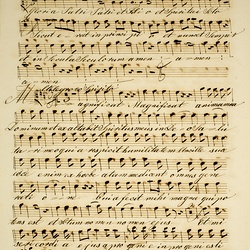 Gloria Patri Patri et Filio et Spiritui
Sicut erat in principio et nunc semper
et in secula seculorum amen a - men
amen
Allegro
Magnificat Magnificat anima mea
Dominum et exaltavit Spiritus meus in Deo Sa - lu
ta - ri meo quia respexit humilitatem ancille sue
ecce enim ex hoc beatam me dicent omnes gene
rati o nes Quia fecit mihi magna qui po
tens est et Sanctum nomen nomen ejus Et mi
sericordia ejus a pro genie in progenies et